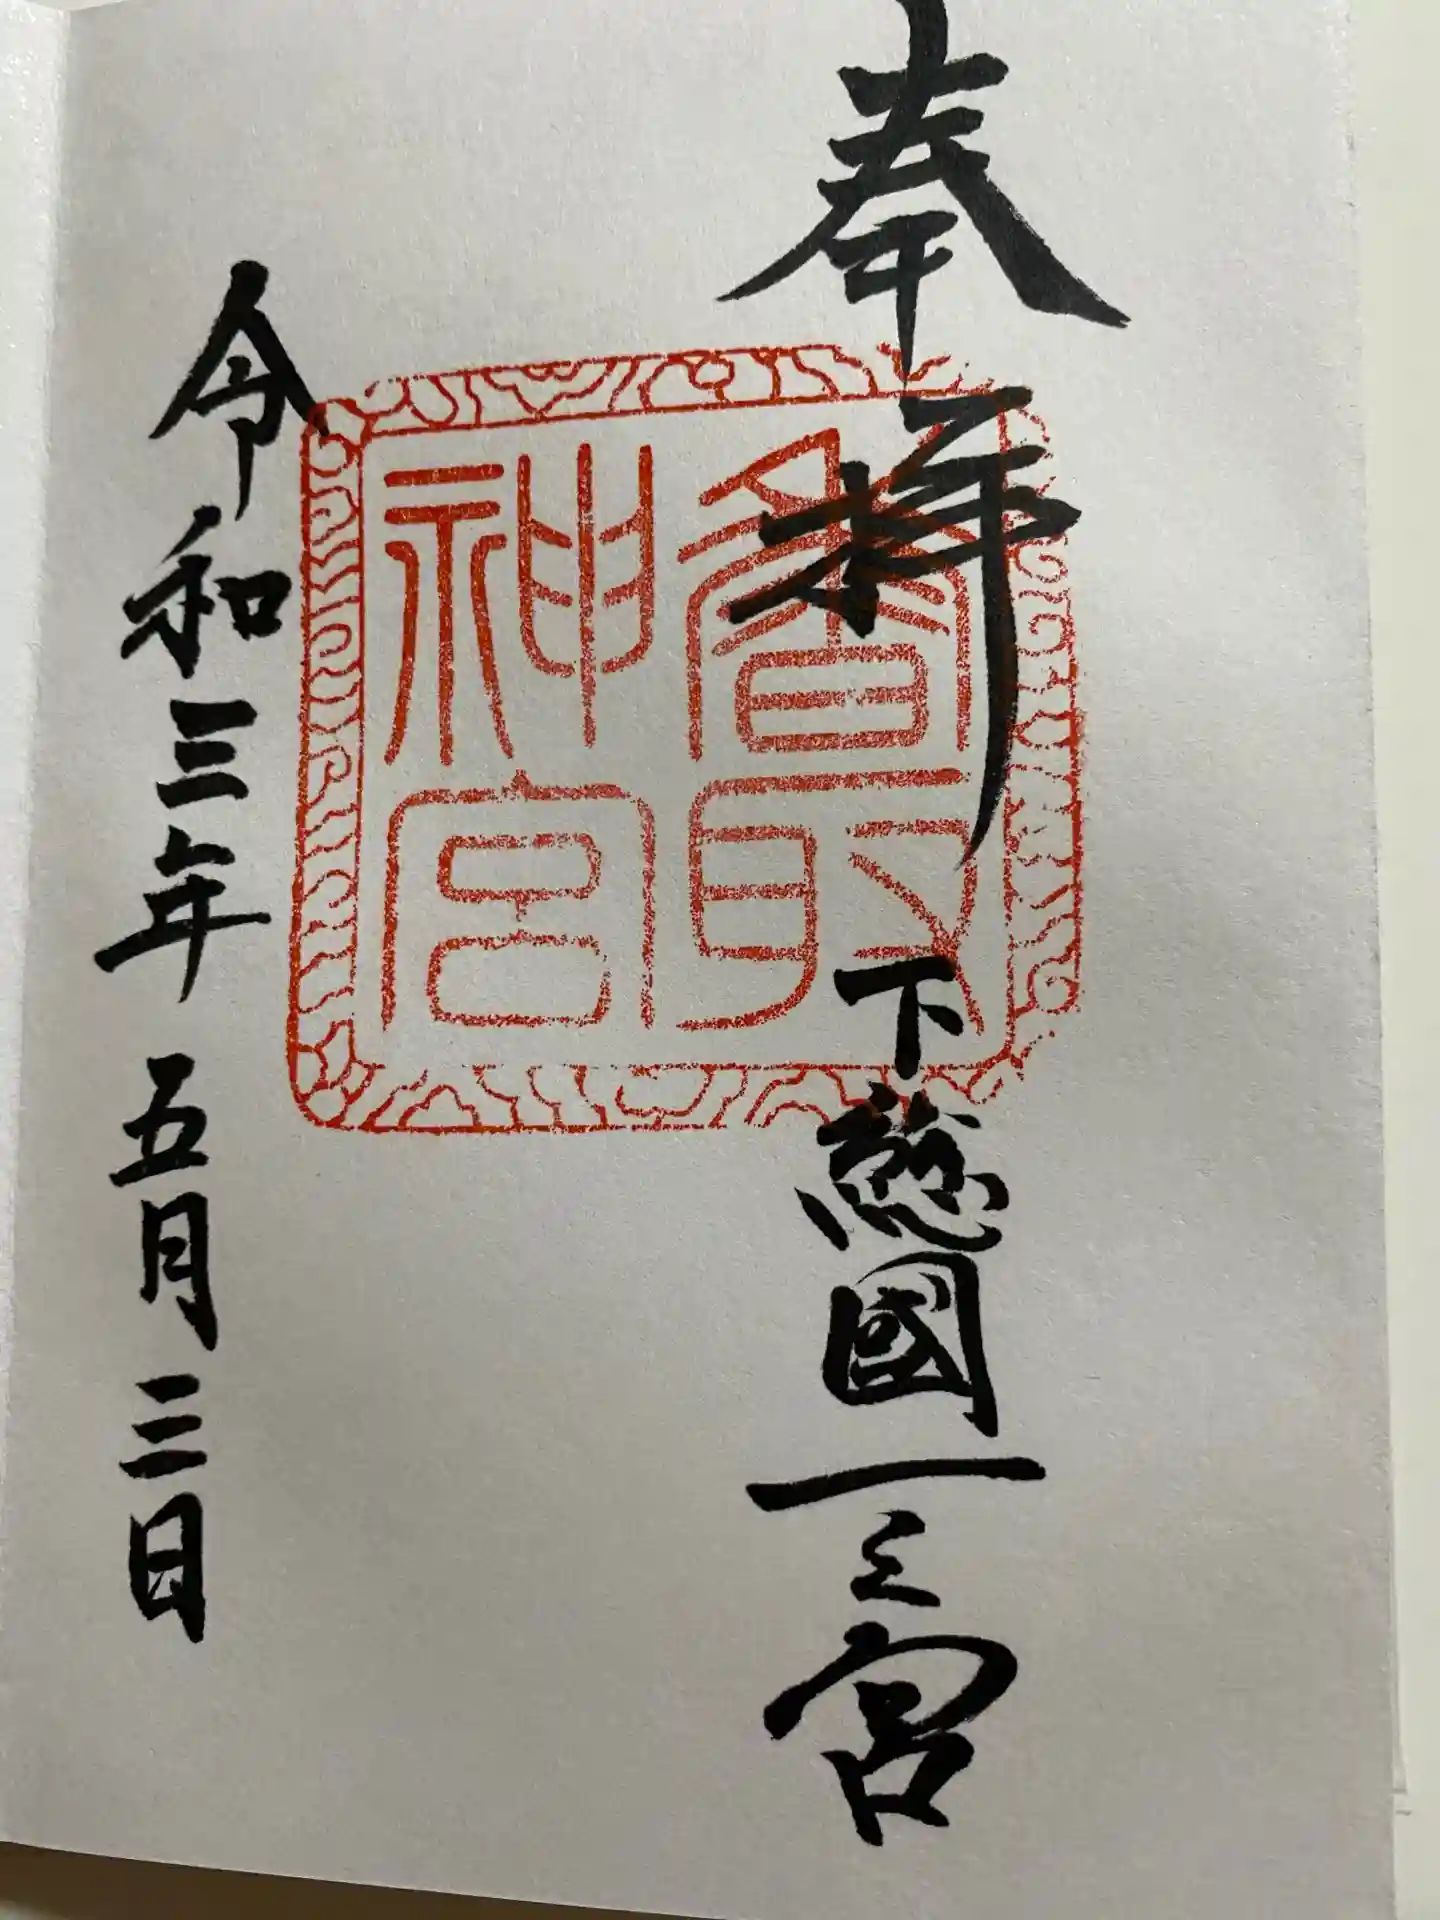 奉拝
下總國一之宮
香取
神宮
令和三年五月三日